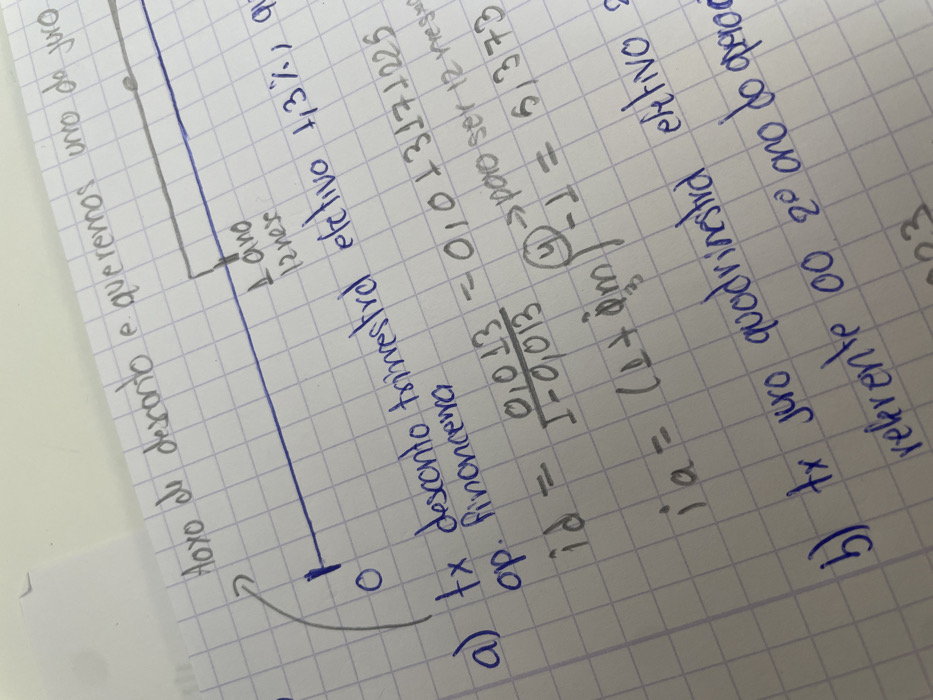 Taxa de desconto e queremos uma de juro
0
1 ano
12 mer
a) tx desconto trimestral efetivo 1,3%,
op. financeira
id = 0,013 / 1-0,013 = 0,013171225
4 → para ser 12 meses
ia = (1 + i3m)^4 - 1 = 5,373
b) tx juro quadrimestral efetivo
referente ao 2º ano da